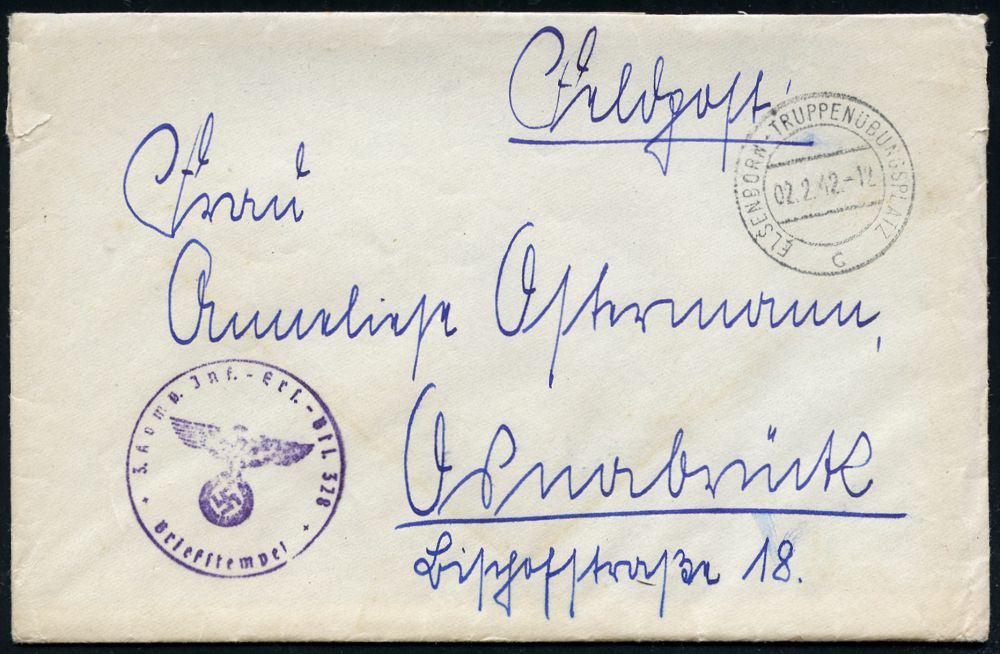 Feldpost!
ELSENBORN-TRUPPENÜBUNGSPLATZ
02.2.42.-12
c
Frau
Anneliese Ostermann,
3. Komp. Inf.-Ers.-Btl. 328
Briefstempel
Osnabrück
Bischofstraße 18.